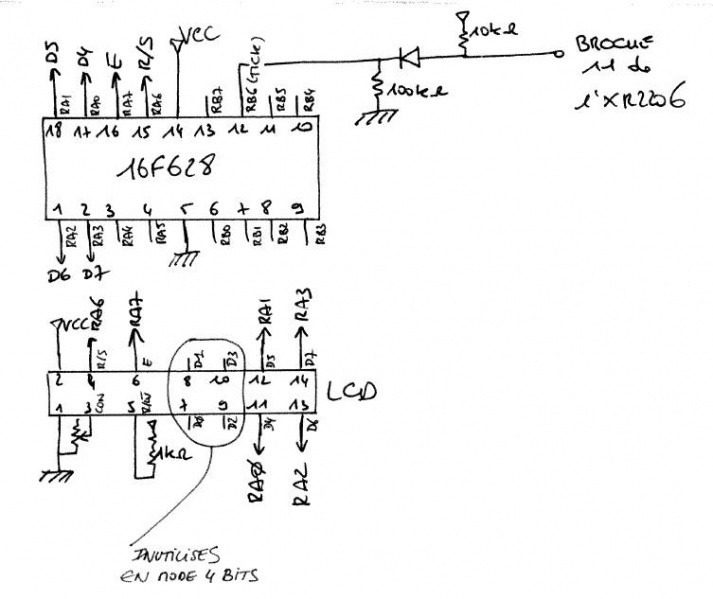 D5 D4 E R/S VCC
RA1 RA0 RA7 RA6 RB7 RB6 (TICK) RB5 RB4
10kΩ
100kΩ
BROCHE
11 de
l'XR2206
18 17 16 15 14 13 12 11 10
16F628
1 2 3 4 5 6 7 8 9
RA2 RA3 RA4 RA5 RB0 RB1 RB2 RB3
D6 D7
VCC RA6 RA7 RA1 RA3
R/S E D1 D3 D5 D7
2 4 6 8 10 12 14
LCD
1 3 5 7 9 11 13
CON R/W D0 D2 D4 D6
1kΩ
RA0 RA2
INUTILISES
EN MODE 4 BITS